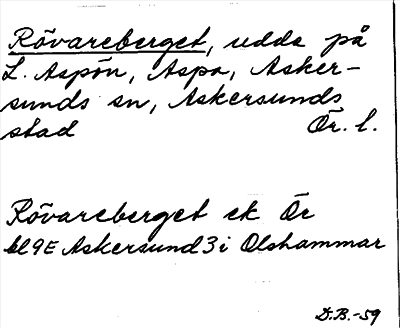 Rövareberget, udde på
L. Aspön, Aspa, Asker-
sunds sn, Askersunds
stad Ör. l.
Rövareberget ek Ör
bl 9E Askersund 3i Olshammar
D.B.-59